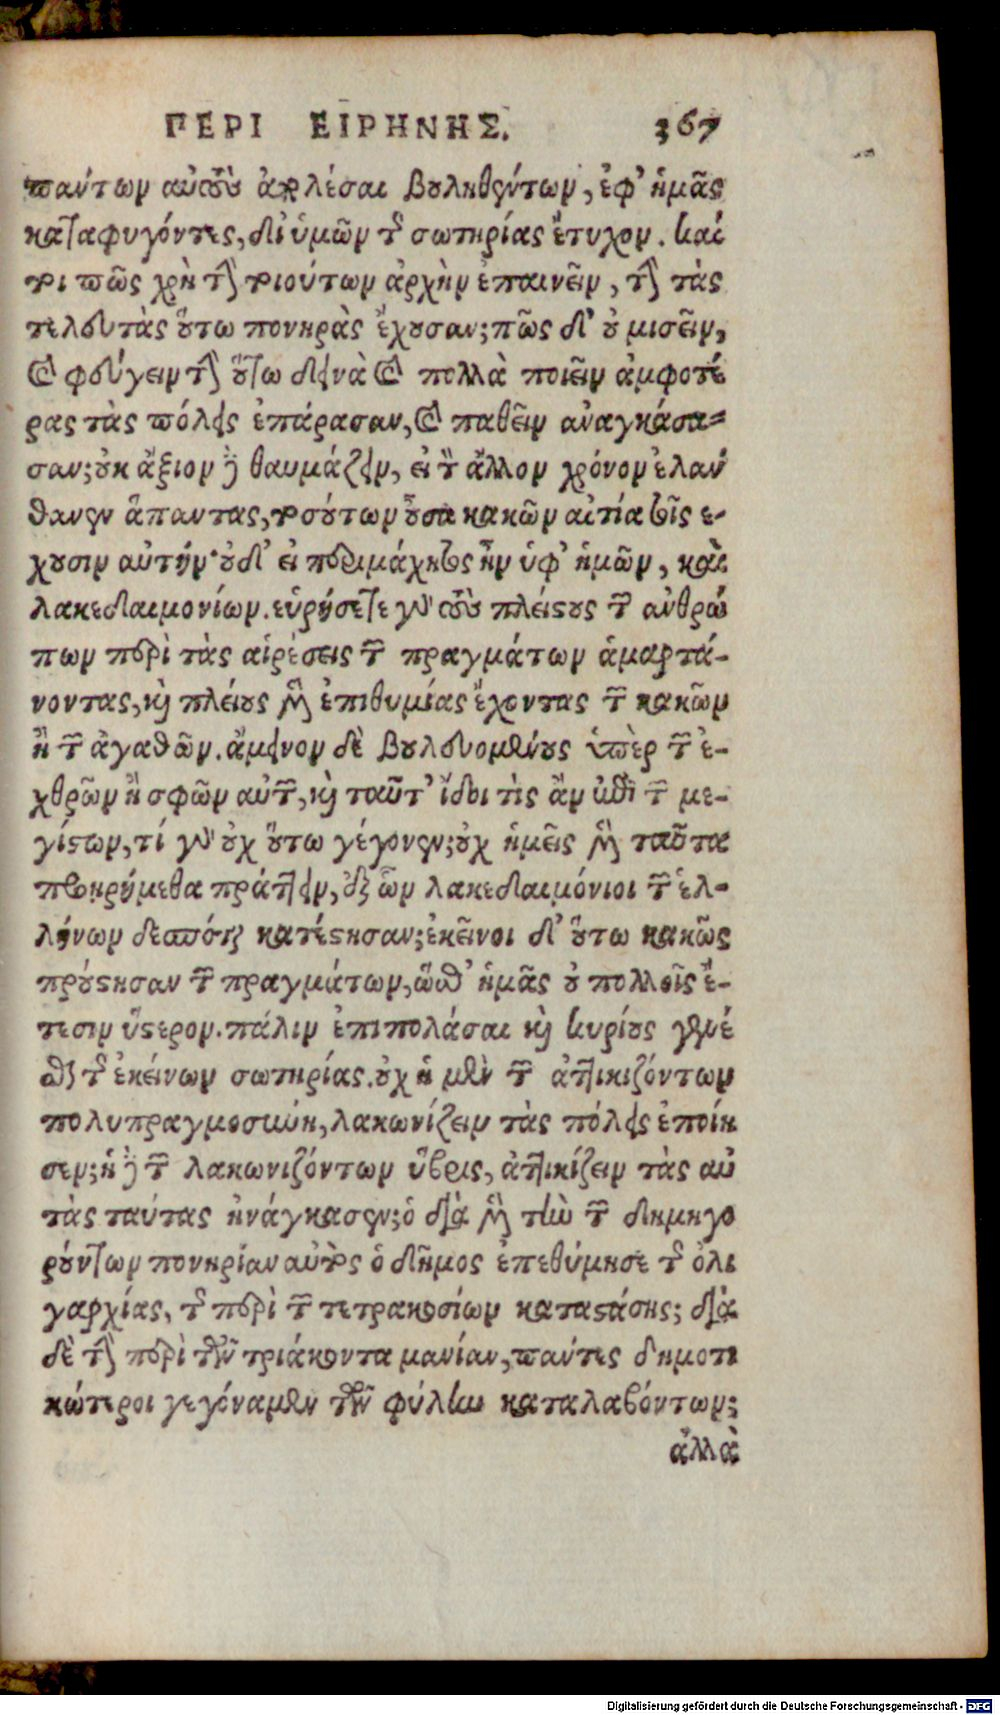 ΠΕΡΙ ΕΙΡΗΝΗΣ. 367
πάντων αὐτοὺς ἀπολέσαι βουληθέντων, ἐφ' ἡμᾶς
καταφυγόντες, δι' ὑμῶν τῆς σωτηρίας ἔτυχον. καί
τοι πῶς χρὴ τὴν τοιούτων ἀρχὴν ἐπαινεῖν, τὴν τὰς
τελευτὰς οὕτω πονηρὰς ἔχουσαν; πῶς δ' οὐ μισεῖν,
καὶ φεύγειν τὴν οὕτω δεινὰ καὶ πολλὰ ποιεῖν ἀμφοτέ
ρας τὰς πόλεις ἐπάρασαν, καὶ παθεῖν ἀναγκάσα-
σαν; οὐκ ἄξιον δὲ θαυμάζειν, εἰ τὸν ἄλλον χρόνον ἐλάν
θανεν ἅπαντας, τοσούτων οὖσα κακῶν αἰτία τοῖς ἔ-
χουσιν αὐτήν· οὐδ' εἰ περιμάχητος ἦν ὑφ' ἡμῶν, καὶ
λακεδαιμονίων. εὑρήσετε γὰρ τοὺς πλείστους τῶν ἀνθρώ
πων περὶ τὰς αἱρέσεις τῶν πραγμάτων ἁμαρτά-
νοντας, καὶ πλείους μὲν ἐπιθυμίας ἔχοντας τῶν κακῶν
ἢ τῶν ἀγαθῶν. ἄμεινον δὲ βουλευομένους ὑπὲρ τῶν ἐ-
χθρῶν ἢ σφῶν αὐτῶν, καὶ ταῦτ' ἴδοι τὶς ἂν ἐπὶ τῶν με-
γίστων, τί γὰρ οὐχ οὕτω γέγονεν; οὐχ ἡμεῖς μὲν ταῦτα
προῃρήμεθα πράττειν, ἐξ ὧν λακεδαιμόνιοι τῶν ἑλ-
λήνων δεσπόται κατέστησαν; ἐκεῖνοι δ' οὕτω κακῶς
προύστησαν τῶν πραγμάτων, ὥσθ' ἡμᾶς οὐ πολλοῖς ἔ-
τεσιν ὕστερον. πάλιν ἐπιπολάσαι καὶ κυρίους γενέ
σθαι τῆς ἐκείνων σωτηρίας. οὐχ ἡ μὲν τῶν ἀττικιζόντων
πολυπραγμοσύνη, λακωνίζειν τὰς πόλεις ἐποίη
σεν; ἡ δὲ τῶν λακωνιζόντων ὕβρις, ἀττικίζειν τὰς αὐ
τὰς ταύτας ἠνάγκασεν; ὁ διὰ μὲν τὴν τῶν δημηγο
ρούντων πονηρίαν αὐτὸς ὁ δῆμος ἐπεθύμησε τῆς ὀλι
γαρχίας, τῆς περὶ τῶν τετρακοσίων καταστάσης; διὰ
δὲ τὴν περὶ τῶν τριάκοντα μανίαν, πάντες δημοτι
κώτεροι γεγόναμεν τῶν φύλην καταλαβόντων;
ἀλλὰ
Digitalisierung gefördert durch die Deutsche Forschungsgemeinschaft - DFG